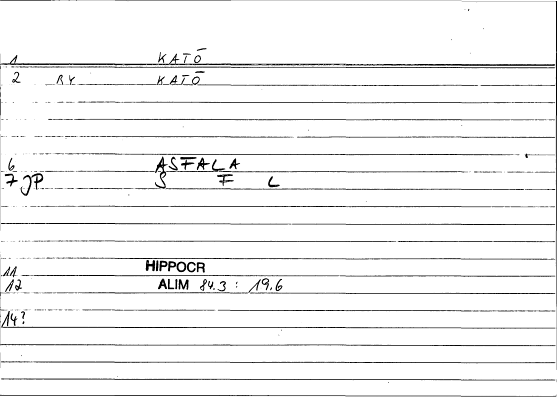 1 KATŌ
2 RY KATŌ
6 ASFALA
7 JP S F L
11 HIPPOCR
12 ALIM 84.3 : 19.6
14?